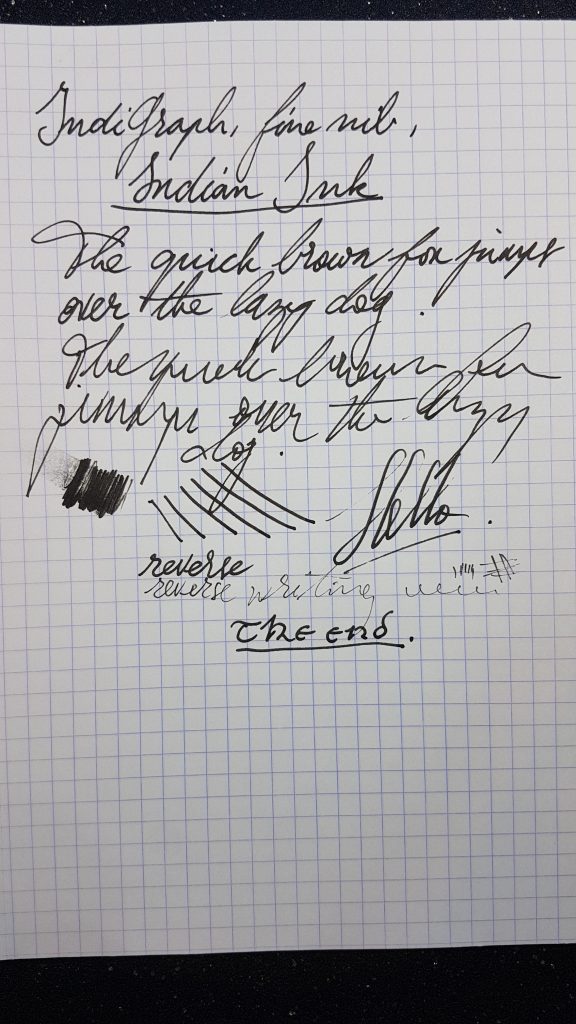 IndiGraph, fine nib,
Indian Ink
The quick brown fox jumps
over the lazy dog.
The quick brown fox
jumps over the lazy
dog.
Hello.
reverse
reverse writing
The end.